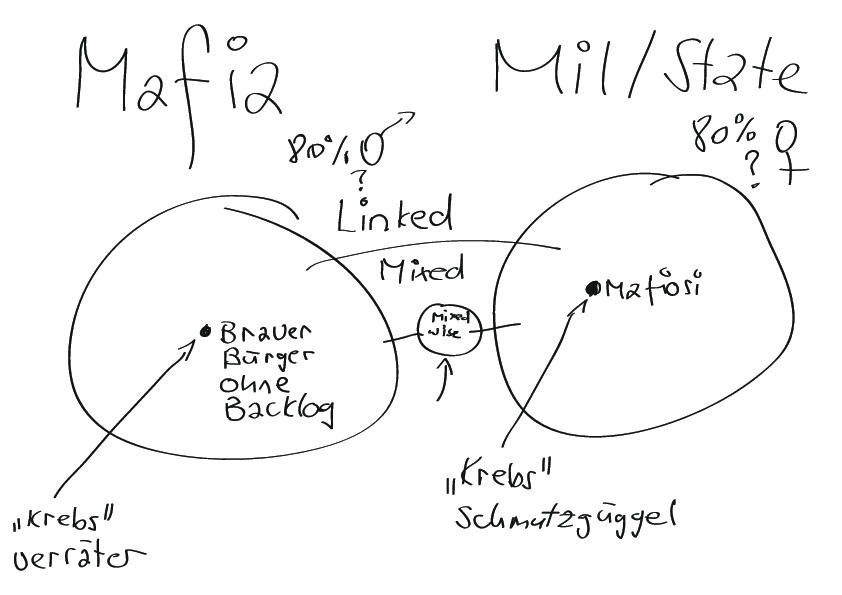 Mafia
Mil/State
80% ♂
?
80% ♀
?
Linked
Mixed
Mixed
wise
Brauer
Bürger
ohne
Backlog
Mafiosi
„Krebs"
verräter
„Krebs"
Schmutzgüggel